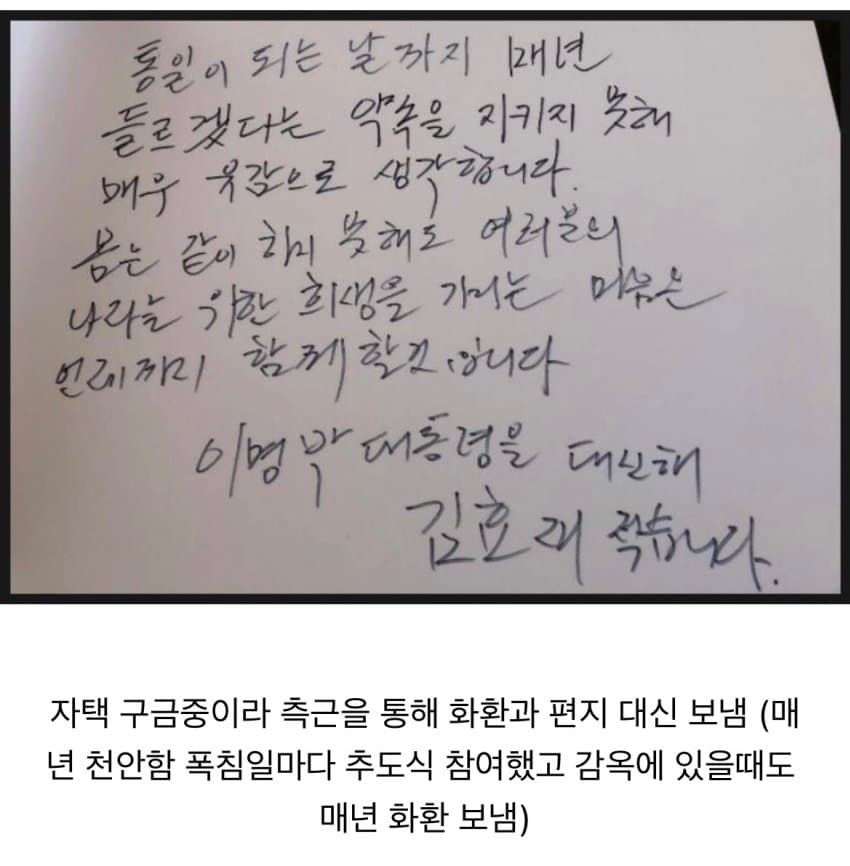 통일이 되는 날까지 매년
들르겠다는 약속을 지키지 못해
매우 유감으로 생각합니다.
몸은 같이 하지 못해도 여러분의
나라를 위한 희생을 기리는 마음은
언제까지 함께 할것입니다
이명박 대통령을 대신해
김효재 적습니다.
자택 구금중이라 측근을 통해 화환과 편지 대신 보냄 (매
년 천안함 폭침일마다 추도식 참여했고 감옥에 있을때도
매년 화환 보냄)